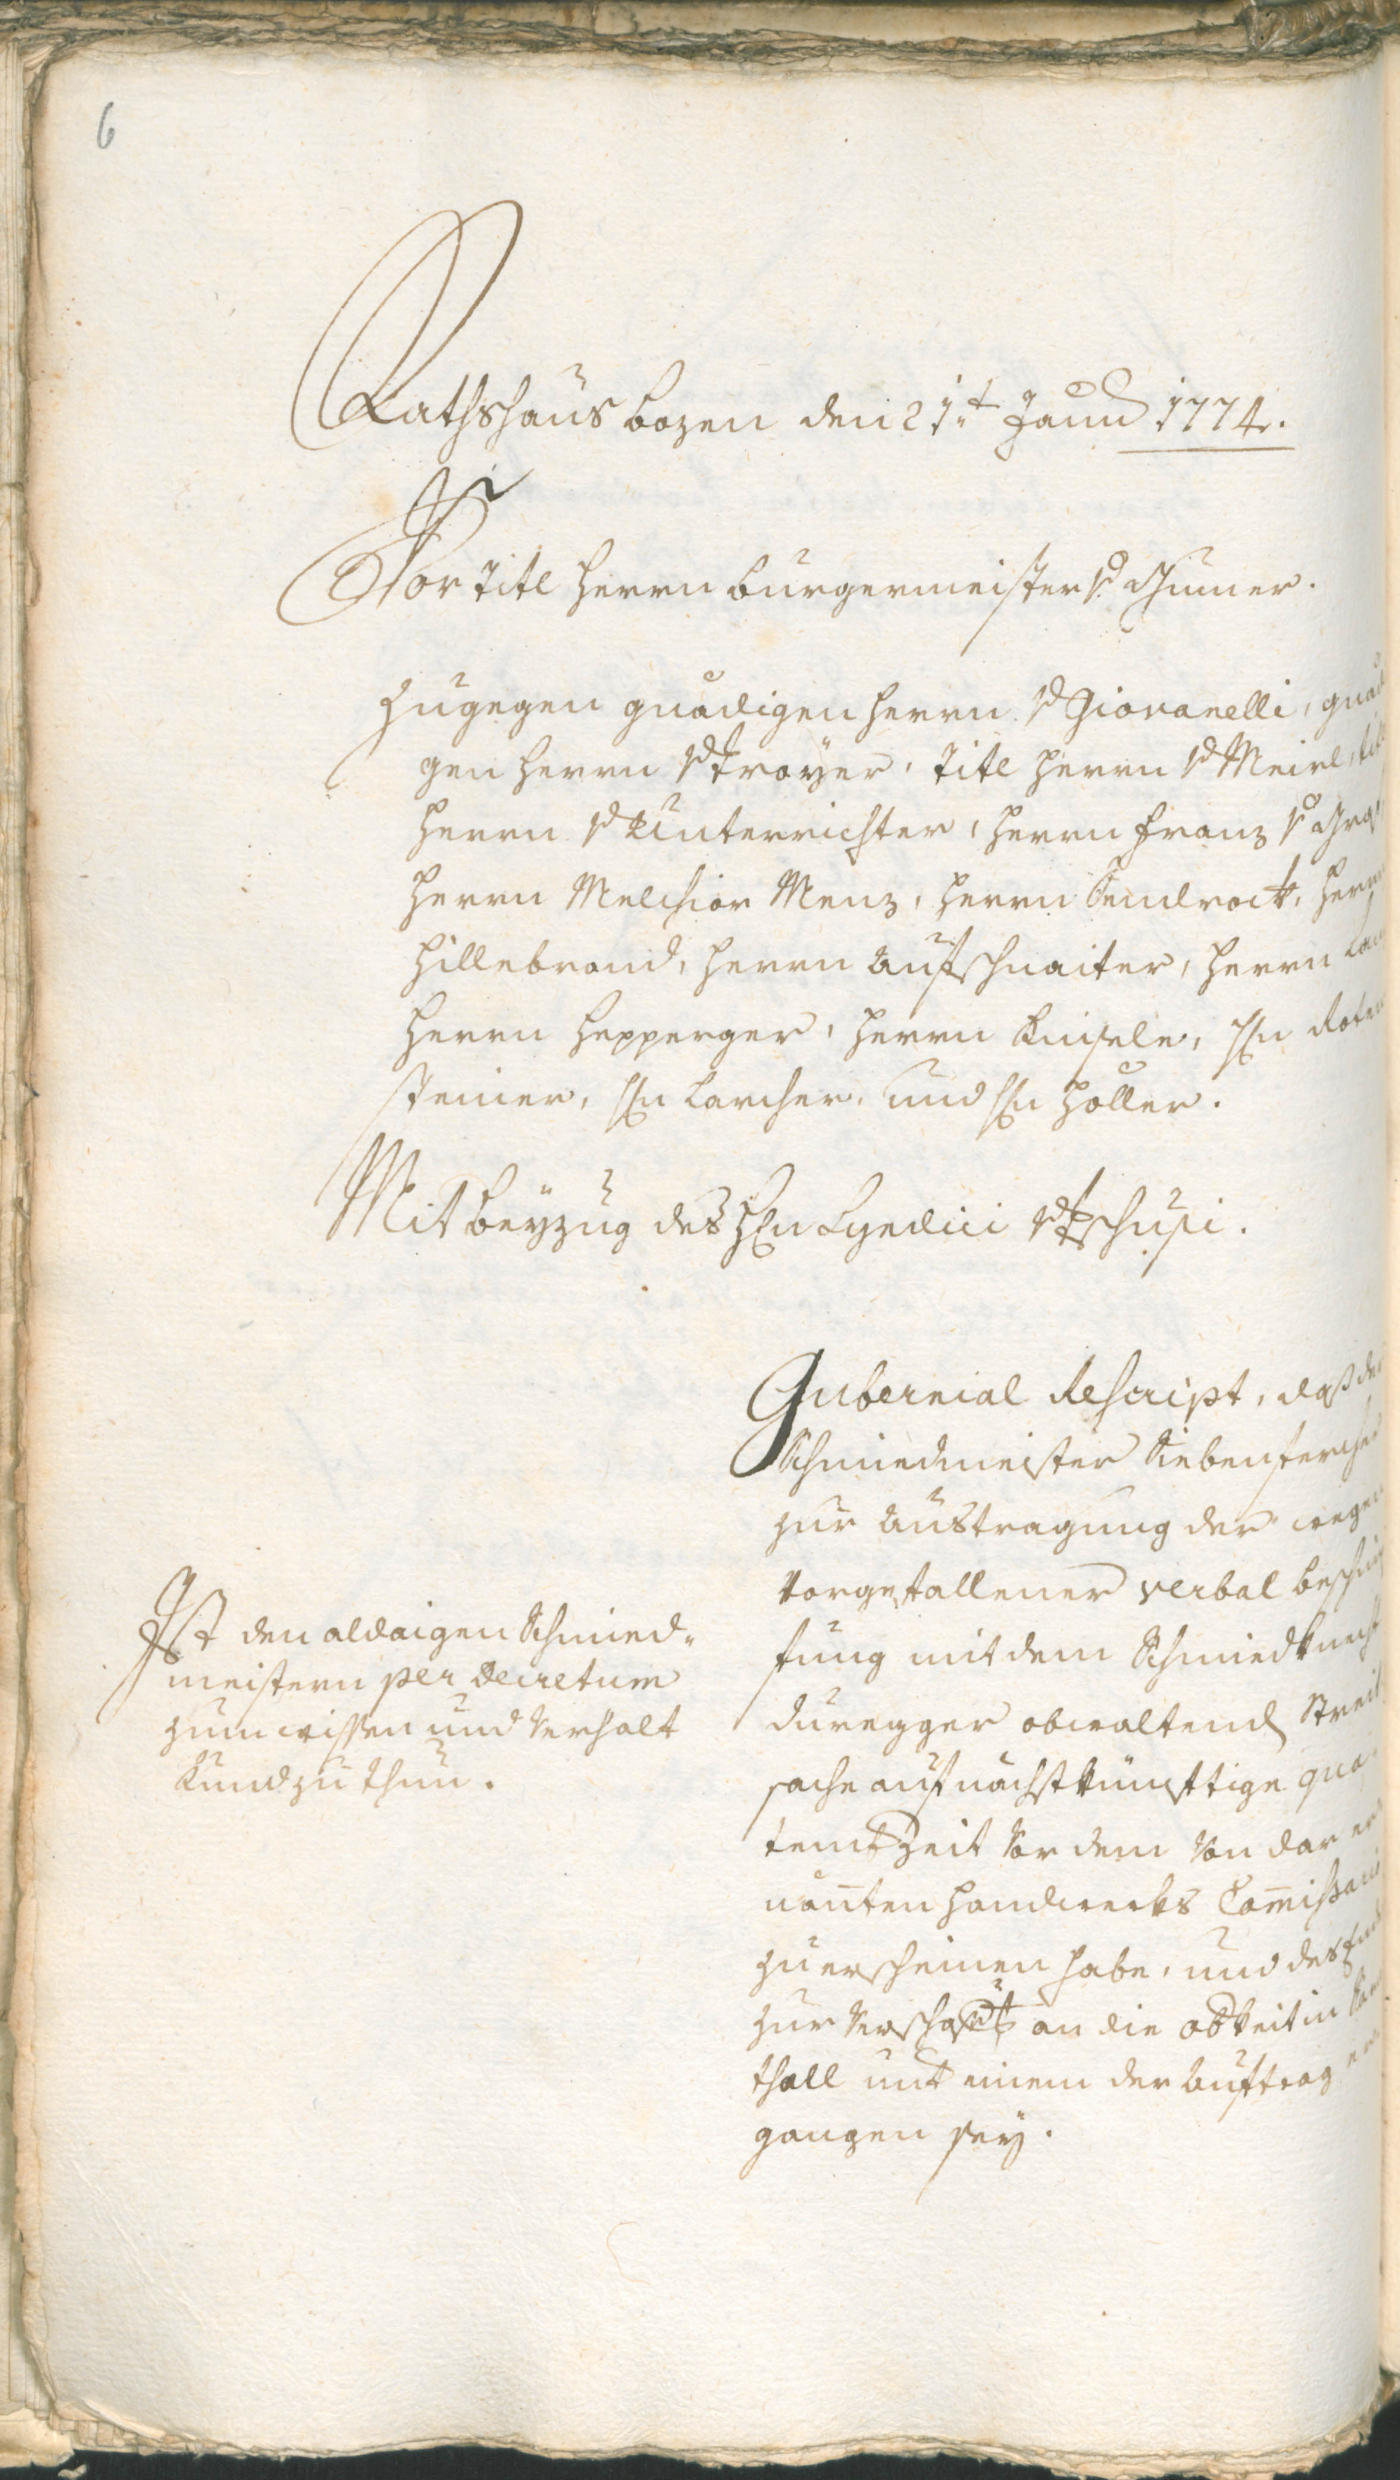 6
Rathshaus Bozen den 21.t Jann 1774.
Vor Titl Herrn Burgermeister v Gumer.
Zugegen gnädigen Herrn v Giovanelli, gnädi
gen Herrn v Troyer, Titl Herrn v Meirl, titl
Herrn v Unterrichter, Herrn Franz v
Herrn Melchior Menz, Herrn Sendrock, Herrn
Hillebrand, Herrn Aufschnaiter, Herrn
Herrn Hepperger, Herrn Kinsele, H[errn] Roten
steiner, Hn Larcher, und Hn Holler.
Mit Beyzug des Hn Syndici v Tschusi.
Gubernial Rescript, daß der
Schmiedmeister Siebenfercher
zur Austragung der wegen
vorgefallener verbal beschim
fung mit dem Schmiedknecht
Duregger obwaltend Streit
sache auf nächstkünfttige qua
temb Zeit vor dem von dar er
nanten Handwerks Commissario
zu erscheinen habe, und des End
zur an die obkeit in
thall unt einem der Auftrag er
gangen sey.
Ist den aldaigen Schmied„
meistern per Decretum
zum wissen und Verhalt
kund zu thun.